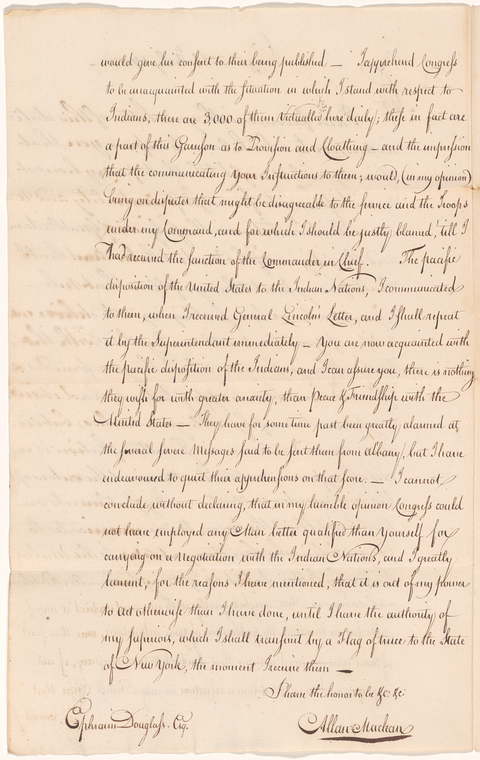 would give his consent to their being published — I apprehend Congress
to be unacquainted with the situation in which I stand with respect to
Indians, there are 3000 of them Victualled here daily; these in fact are
a part of this Garrison as to Provision and Cloathing — and the impression
that the communicating your Instructions to them; would, (in my opinion)
bring on disputes that might be disagreeable to the service and the Troops
under my Command, and for which I should be justly blamed, till I
had received the sanction of the Commander in Chief. The pacific
disposition of the United States to the Indian Nations, I communicated
to them, when I received General Lincoln's Letter, and I shall repeat
it by the Superintendant immediately — You are now acquainted with
the pacific disposition of the Indians, and I can assure you, there is nothing
they wish for with greater anxiety, than Peace & Friendship with the
United States — They have for some time past been greatly alarmed at
the several severe Messages said to be sent them from Albany, but I have
endeavoured to quiet their apprehensions on that score. — I cannot
conclude without declaring, that in my humble opinion Congress could
not have employed any Man better qualified than Yourself for
carrying on a Negotiation with the Indian Nations, and I greatly
lament, for the reasons I have mentioned, that it is out of my power
to act otherwise than I have done, until I have the authority of
my Superiors, which I shall transmit by a Flag of truce to the State
of New York, the moment I receive them —
I have the honor to be &c. &c.
Ephraim Douglass. Esq. Allan Maclean